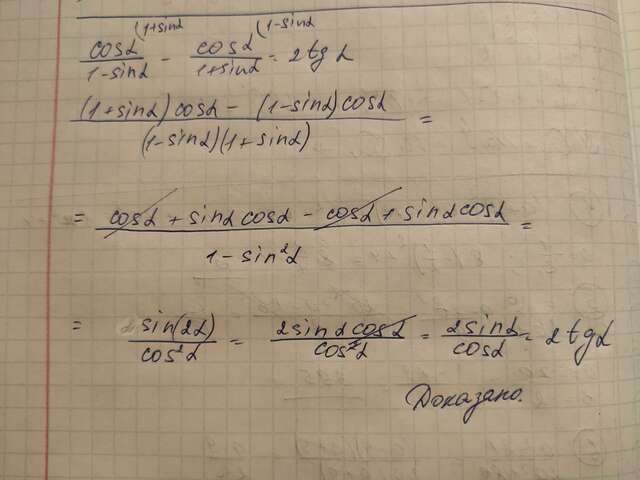 (1+sinα (1-sinα
cosα/1-sinα - cosα/1+sinα = 2tgα
(1+sinα)cosα - (1-sinα)cosα/(1-sinα)(1+sinα) =
= cosα + sinαcosα - cosα + sinαcosα/1-sin²α =
= sin(2α)/cos²α = 2sinαcosα/cos²α = 2sinα/cosα = 2tgα
Доказано.